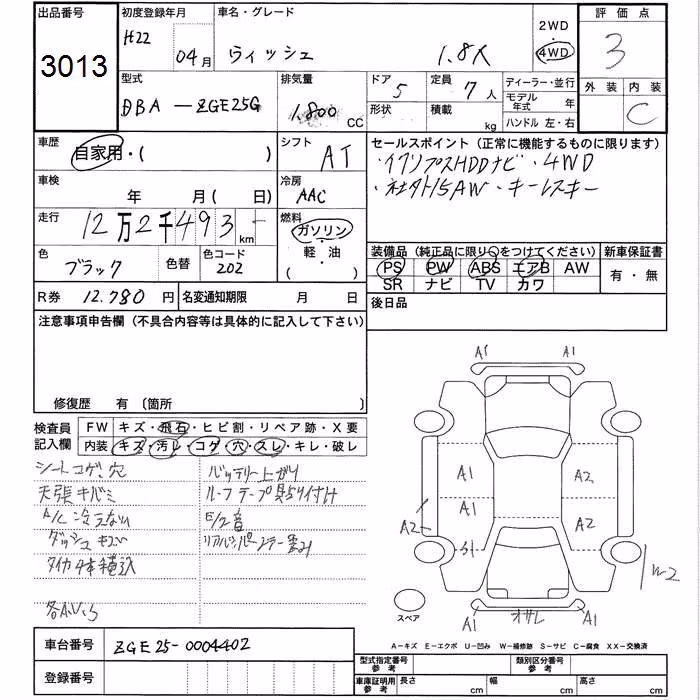 出品番号
3013
初度登録年月
H22
04月
車名・グレード
ウィッシュ 1.8X
2WD
・
4WD
評価点
3
外装 内装
C
型式
DBA-ZGE25G
排気量
1,800 CC
ドア
5
定員
7人
形状
積載
kg
ディーラー・並行
モデル年式 年
ハンドル 左・右
車歴
自家用・( )
シフト
AT
セールスポイント(正常に機能するものに限ります)
・イクリプスHDDナビ・4WD
・社外15AW・キーレスキー
車検
年 月( 日)
冷房
AAC
走行
12万2千493 km
燃料
ガソリン
・軽・油
( )
色
ブラック
色替
色コード
202
装備品(純正品に限り○をつけてください)
PS PW ABS エアB AW
SR ナビ TV カワ
新車保証書
有・無
R券 12,780円
名変通知期限 月 日
後日品
注意事項申告欄(不具合内容等は具体的に記入して下さい)
修復歴 有 〔箇所 〕
検査員
記入欄
FW キズ・飛石・ヒビ割・リペア跡・X要
内装 キズ・汚レ・コゲ・穴・スレ・キレ・破レ
シートコゲ、穴
天張キバミ
A/C冷えない
ダッシュキズ
タイヤ4本積込
バッテリー上がり
ルーフテープ貼り付け
E/G音
A1 A1
A1 A2
A1 A2
A2
S1
W2
A1 オサレ A1
スペア
A-キズ E-エクボ U-凹み W-補修跡 S-サビ C-腐食 XX-交換済
車台番号 ZGE25-0004402
登録番号
型式指定番号
参考
類別区分番号
参考
車庫証明用
参考
長さ cm 幅 cm 高さ cm